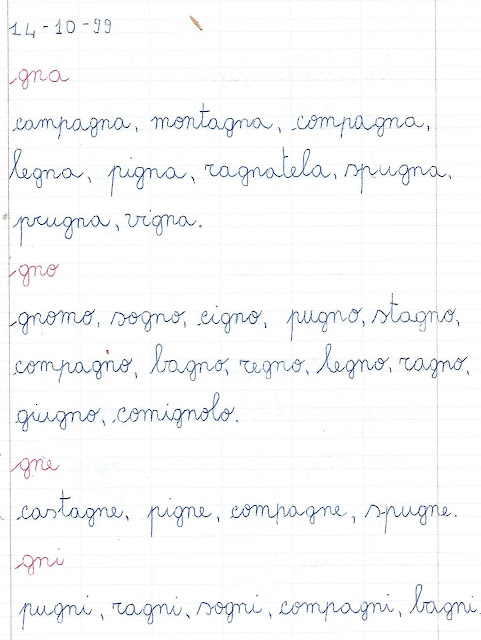 14-10-99
gna
campagna, montagna, compagna,
legna, pigna, ragnatela, spugna,
prugna, vigna.
gno
gnomo, sogno, cigno, pugno, stagno,
compagno, bagno, regno, legno, ragno,
giugno, comignolo.
gne
castagne, pigne, compagne, spugne.
gni
pugni, ragni, sogni, compagni, bagni.